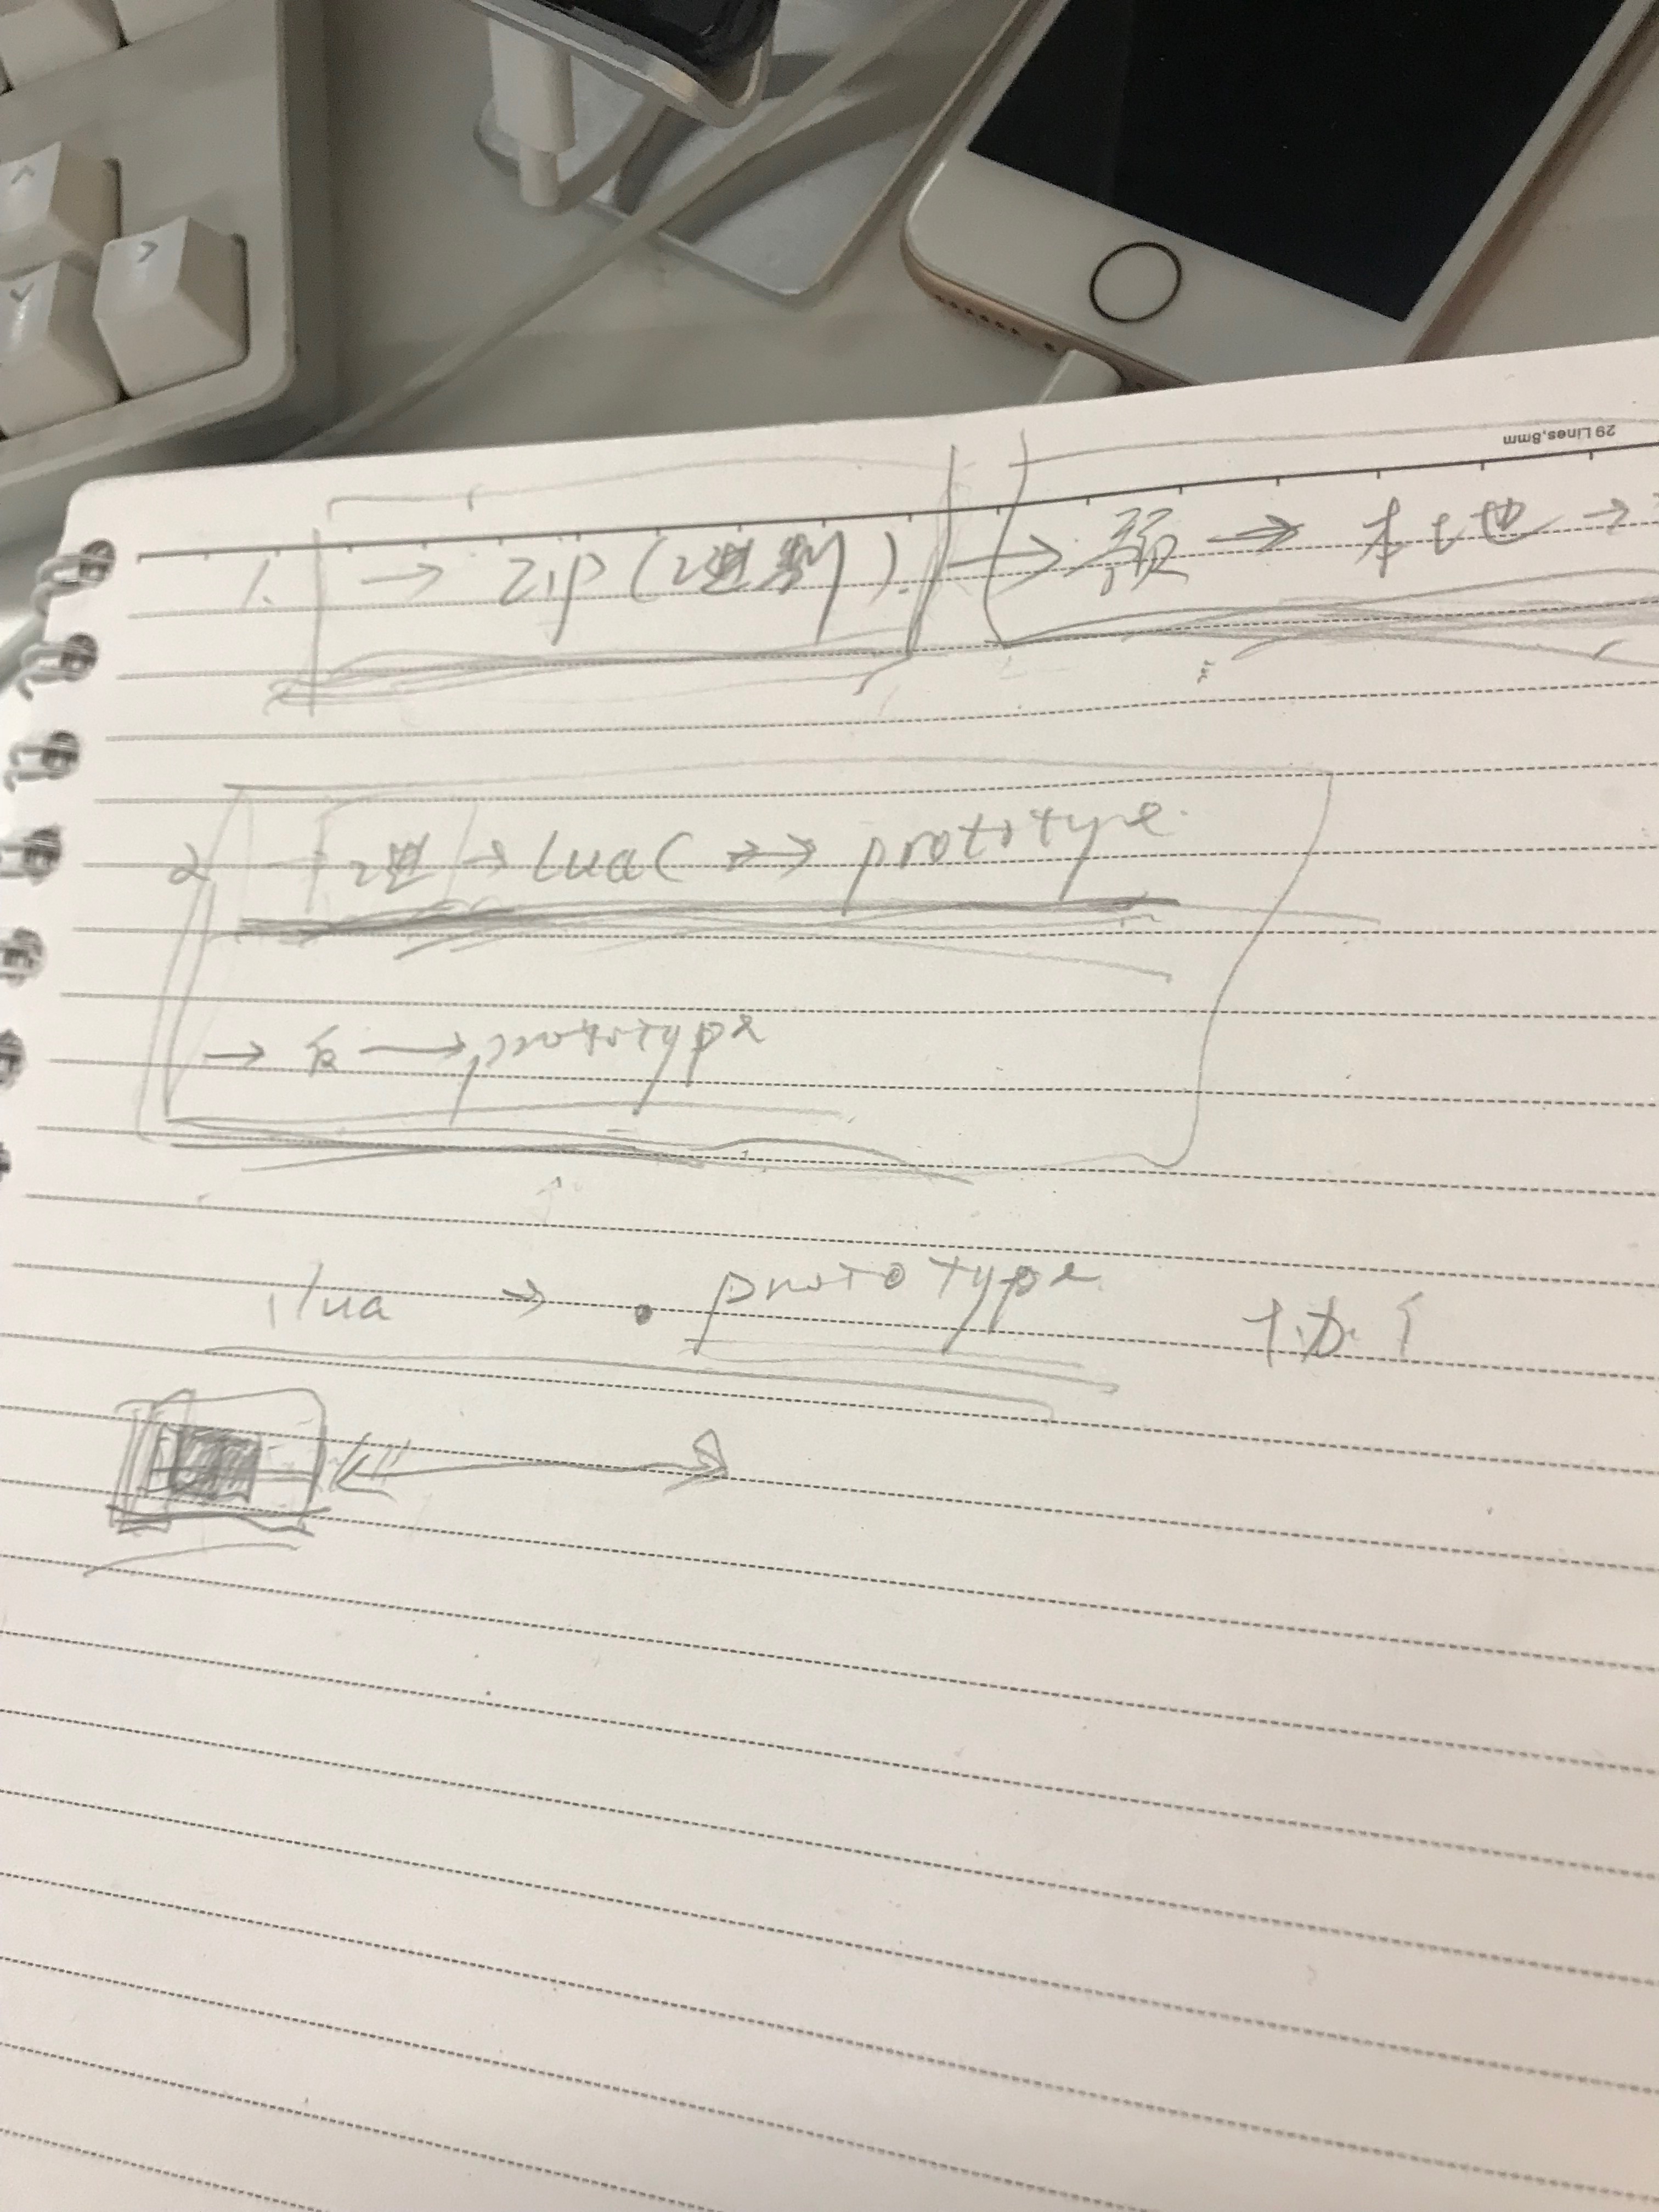 29 Lines,8mm
1. → zip (2进制) → 预 → 本地 →
2 2进 → luac → prototype
→ 反 → prototype
lua → prototype